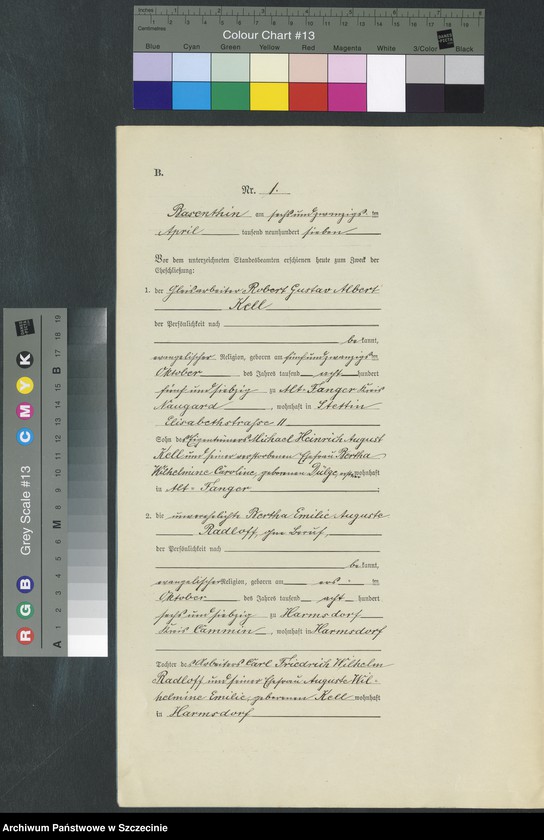 Inches 1 2 3 4 5 6 7 8
Centimetres 1 2 3 4 5 6 7 8 9 10 11 12 13 14 15 16 17 18 19
Colour Chart #13
Blue Cyan Green Yellow Red Magenta White 3/Color Black
B.
Nr. 1.
Rarenthin am sechsundzwanzigsten
April tausend neunhundert sieben
Vor dem unterzeichneten Standesbeamten erschienen heute zum Zweck der
Eheschließung:
1. der Gleisarbeiter Robert Gustav Albert
Kell
der Persönlichkeit nach
bekannt,
evangelischer Religion, geboren am fünfundzwanzigsten
Oktober des Jahres tausend acht hundert
fünf und siebzig zu Alt-Fanger Kreis
Naugard, wohnhaft in Stettin
Elisabethstraße 11
Sohn des Eigentümers Michael Heinrich August
Kell und seiner verstorbenen Ehefrau Bertha
Wilhelmine Caroline, geborenen wohnhaft
in Alt-Fanger
2. die unverehelichte Bertha Emilie Auguste
Radloff, ohne Beruf,
der Persönlichkeit nach
bekannt,
evangelischer Religion, geboren am ersten
Oktober des Jahres tausend acht hundert
sechs und siebzig zu Harmsdorf
Kreis Cammin, wohnhaft in Harmsdorf
Tochter des Arbeiters Carl Friedrich Wilhelm
Radloff und seiner Ehefrau Auguste Wil-
helmine Emilie, geborenen Kell wohnhaft
in Harmsdorf
Grey Scale #13
R G B C M Y K
A 1 2 3 4 5 6 M 8 9 10 11 12 13 14 15 B 17 18 19
Archiwum Państwowe w Szczecinie